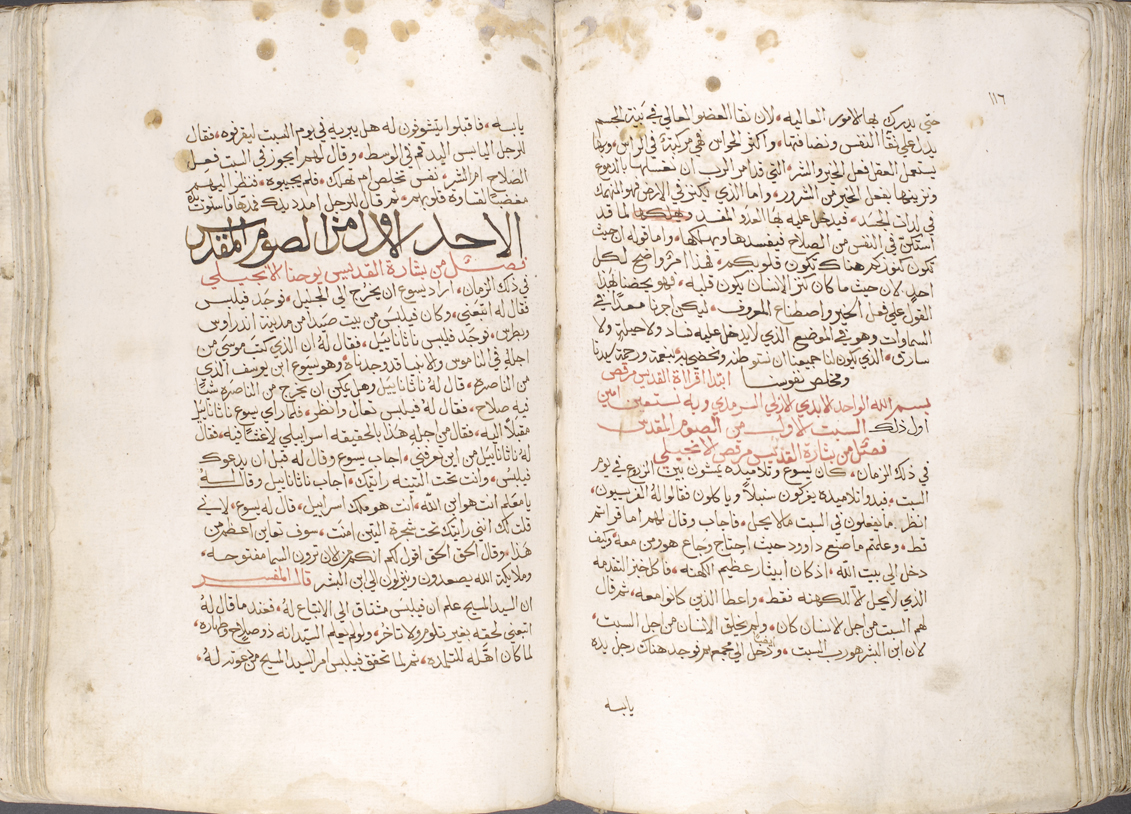 ١١٦
حتى يدرك بها الامور العاليه، لان نقا العضو العالي في بنية الجسم
يدل على نقا النفس ونضافتها، واكثر الحواس في مركبة في الراس، وبها
يستعمل العقل فعل الخير والشر، التي قد امر الرب ان نغسلها بالدموع
ونزينها بفعل الخير من الشرور، واما الذي يكنز في الارض فهو المنهمك
في لذات الجسد، فيدخل عليه بها العدو المفسد ويهلكها لما قد
استكن في النفس من الصلاح فيفسدها ويهلكها، واما قوله ان حيث
تكون كنوزكم هناك تكون قلوبكم، فهذا امر واضح لكل
احد، لان حيث ما كان كنز الانسان يكون قلبه، فهو يحضنا بهذا
القول على فعل الخير واصطناع المعروف، ليكن اجرنا معدا في
السماوات وهو في الموضع الذي لا يدخل عليه فساد ولا حيلة ولا
سارق، الذي يكون لنا جميعنا ان نستوطنه ونحضى به بنعمة ورحمة سيدنا
ومخلص نفوسنا ابتدا اقراة القديس مرقص
بسم الله الواحد الابدي الازلي السرمدي وبه نستعين امين
اول ذلك السبت الاول من الصوم المقدس
فصل من بشارة القديس مرقص الانجيلي
في ذلك الزمان، كان يسوع وتلاميذه يمشون بين الزروع في يوم
السبت، فبدوا تلاميذه يفركون سنبلاً وياكلون فقالوا له الفريسيون،
انظر ما يفعلون في السبت ما لا يحل، فاجاب وقال لهم اما قراتم
قط، وعلمتم ما صنع داوود حيث احتاج وجاع هو ومن معه وكيف
دخل الى بيت الله، اذ كان ابيثار عظيم الكهنه، فاكل خبز التقدمه
الذي لا يحل الا للكهنه فقط، واعطا الذين كانوا معه، ثم قال
لهم السبت من اجل الانسان كان، ولم يخلق الانسان من اجل السبت،
لان ابن البشر هو رب السبت، ودخل ايضا الى مجمعهم فوجد هناك رجل يده
يابسه
يابسه، فاقبلوا يتشوفون له هل يبريه في يوم السبت ليقرفوه، فقال
للرجل اليابس اليد قم في الوسط، وقال لهم ايجوز في السبت فعل
الصلاح ام الشر، نفس تخلص ام تهلك، فلم يجيبوه، فنظر اليهم
مغضبًا لقساوة قلوبهم، ثم قال للرجل امدد يدك فمدها فاستوت يده
الاحد الاول من الصوم المقدس
فصل من بشارة القديس يوحنا الانجيلي
في ذلك الزمان، اراد يسوع ان يخرج الى الجليل، فوجد فيلبس
فقال له اتبعني، وكان فيلبس من بيت صيدا من مدينة اندراوس
وبطرس، فوجد فيلبس ناثانابيل، فقال له ان الذي كتب موسى من
اجله في الناموس والانبيا قد وجدناه وهو يسوع ابن يوسف الذي
من الناصره، قال له ناثانابيل وهل يمكن ان يخرج من الناصره شئًا
فيه صلاح، فقال له فيلبس تعال وانظر، فلما راي يسوع ناثانابيل
مقبلاً اليه، فقال من اجله هذا بالحقيقه اسراييلي لا غش فيه، فقال
له ناثانابيل من اين تعرفني، اجاب يسوع وقال له قبل ان يدعوك
فيلبس، وانت تحت التينه رايتك، اجاب ناثانابيل وقال له
يا معلم انت هو ابن الله، انت هو ملك اسراييل، قال له يسوع، لاني
قلت لك انني رايتك تحت شجرة التين امنت، سوف تعاين اعظم من
هذا، وقال الحق الحق اقول لكم انكم من الان ترون السما مفتوحه،
وملايكة الله يصعدون وينزلون الى ابن البشر قال المفسر
ان السيد المسيح علم ان فيلبس مشتاق الى الاتباع له، فعند ما قال له
اتبعني لحقه بغير تلوم ولا تاخر، ولو لم يعلم السيد انه ذو صلاح وطهاره،
لما كان اهله للتلمذه، ثم لما تحقق فيلبس امر السيد المسيح من دعوته له،